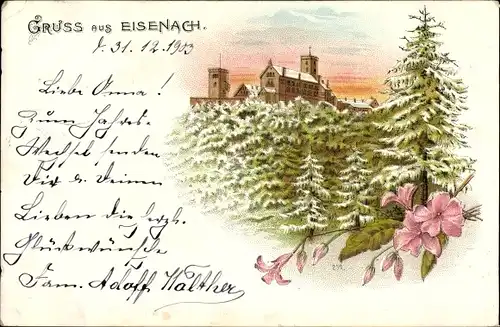 GRUSS AUS EISENACH.
d. 31. 12. 1903
Liebe Anna!
Zum Jahres-
Wechsel senden
Dir u. Deinen
Lieben die herzl.
Glückwünsche
Fam. Adolf Walther